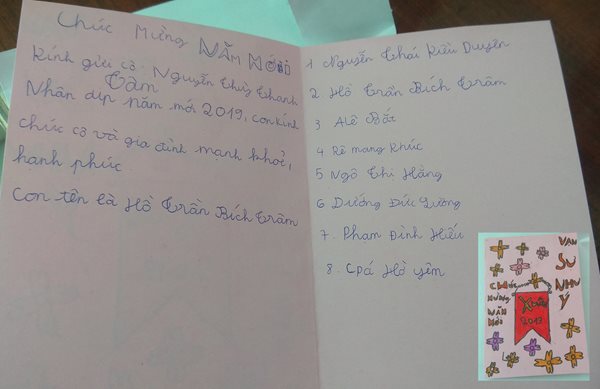 Chúc Mừng NĂM MỚI
Kính gửi cô Nguyễn Thùy Thanh
Tâm
Nhân dịp năm mới 2019, con kính
chúc cô và gia đình mạnh khoẻ,
hạnh phúc.
Con tên là Hồ Trần Bích Trâm
1 Nguyễn Thái Kiều Duyên
2. Hồ Trần Bích Trâm
3 Alê Bắt
4 Rê mang Khúc
5 Ngô Thị Hằng
6 Dướng Đức Lường
7. Phạm Đình Hiếu
8. Cpá Hờ yêm
VẠN
SỰ
NHƯ
Ý
CHÚC
MỪNG
NĂM
MỚI
XUÂN
2019